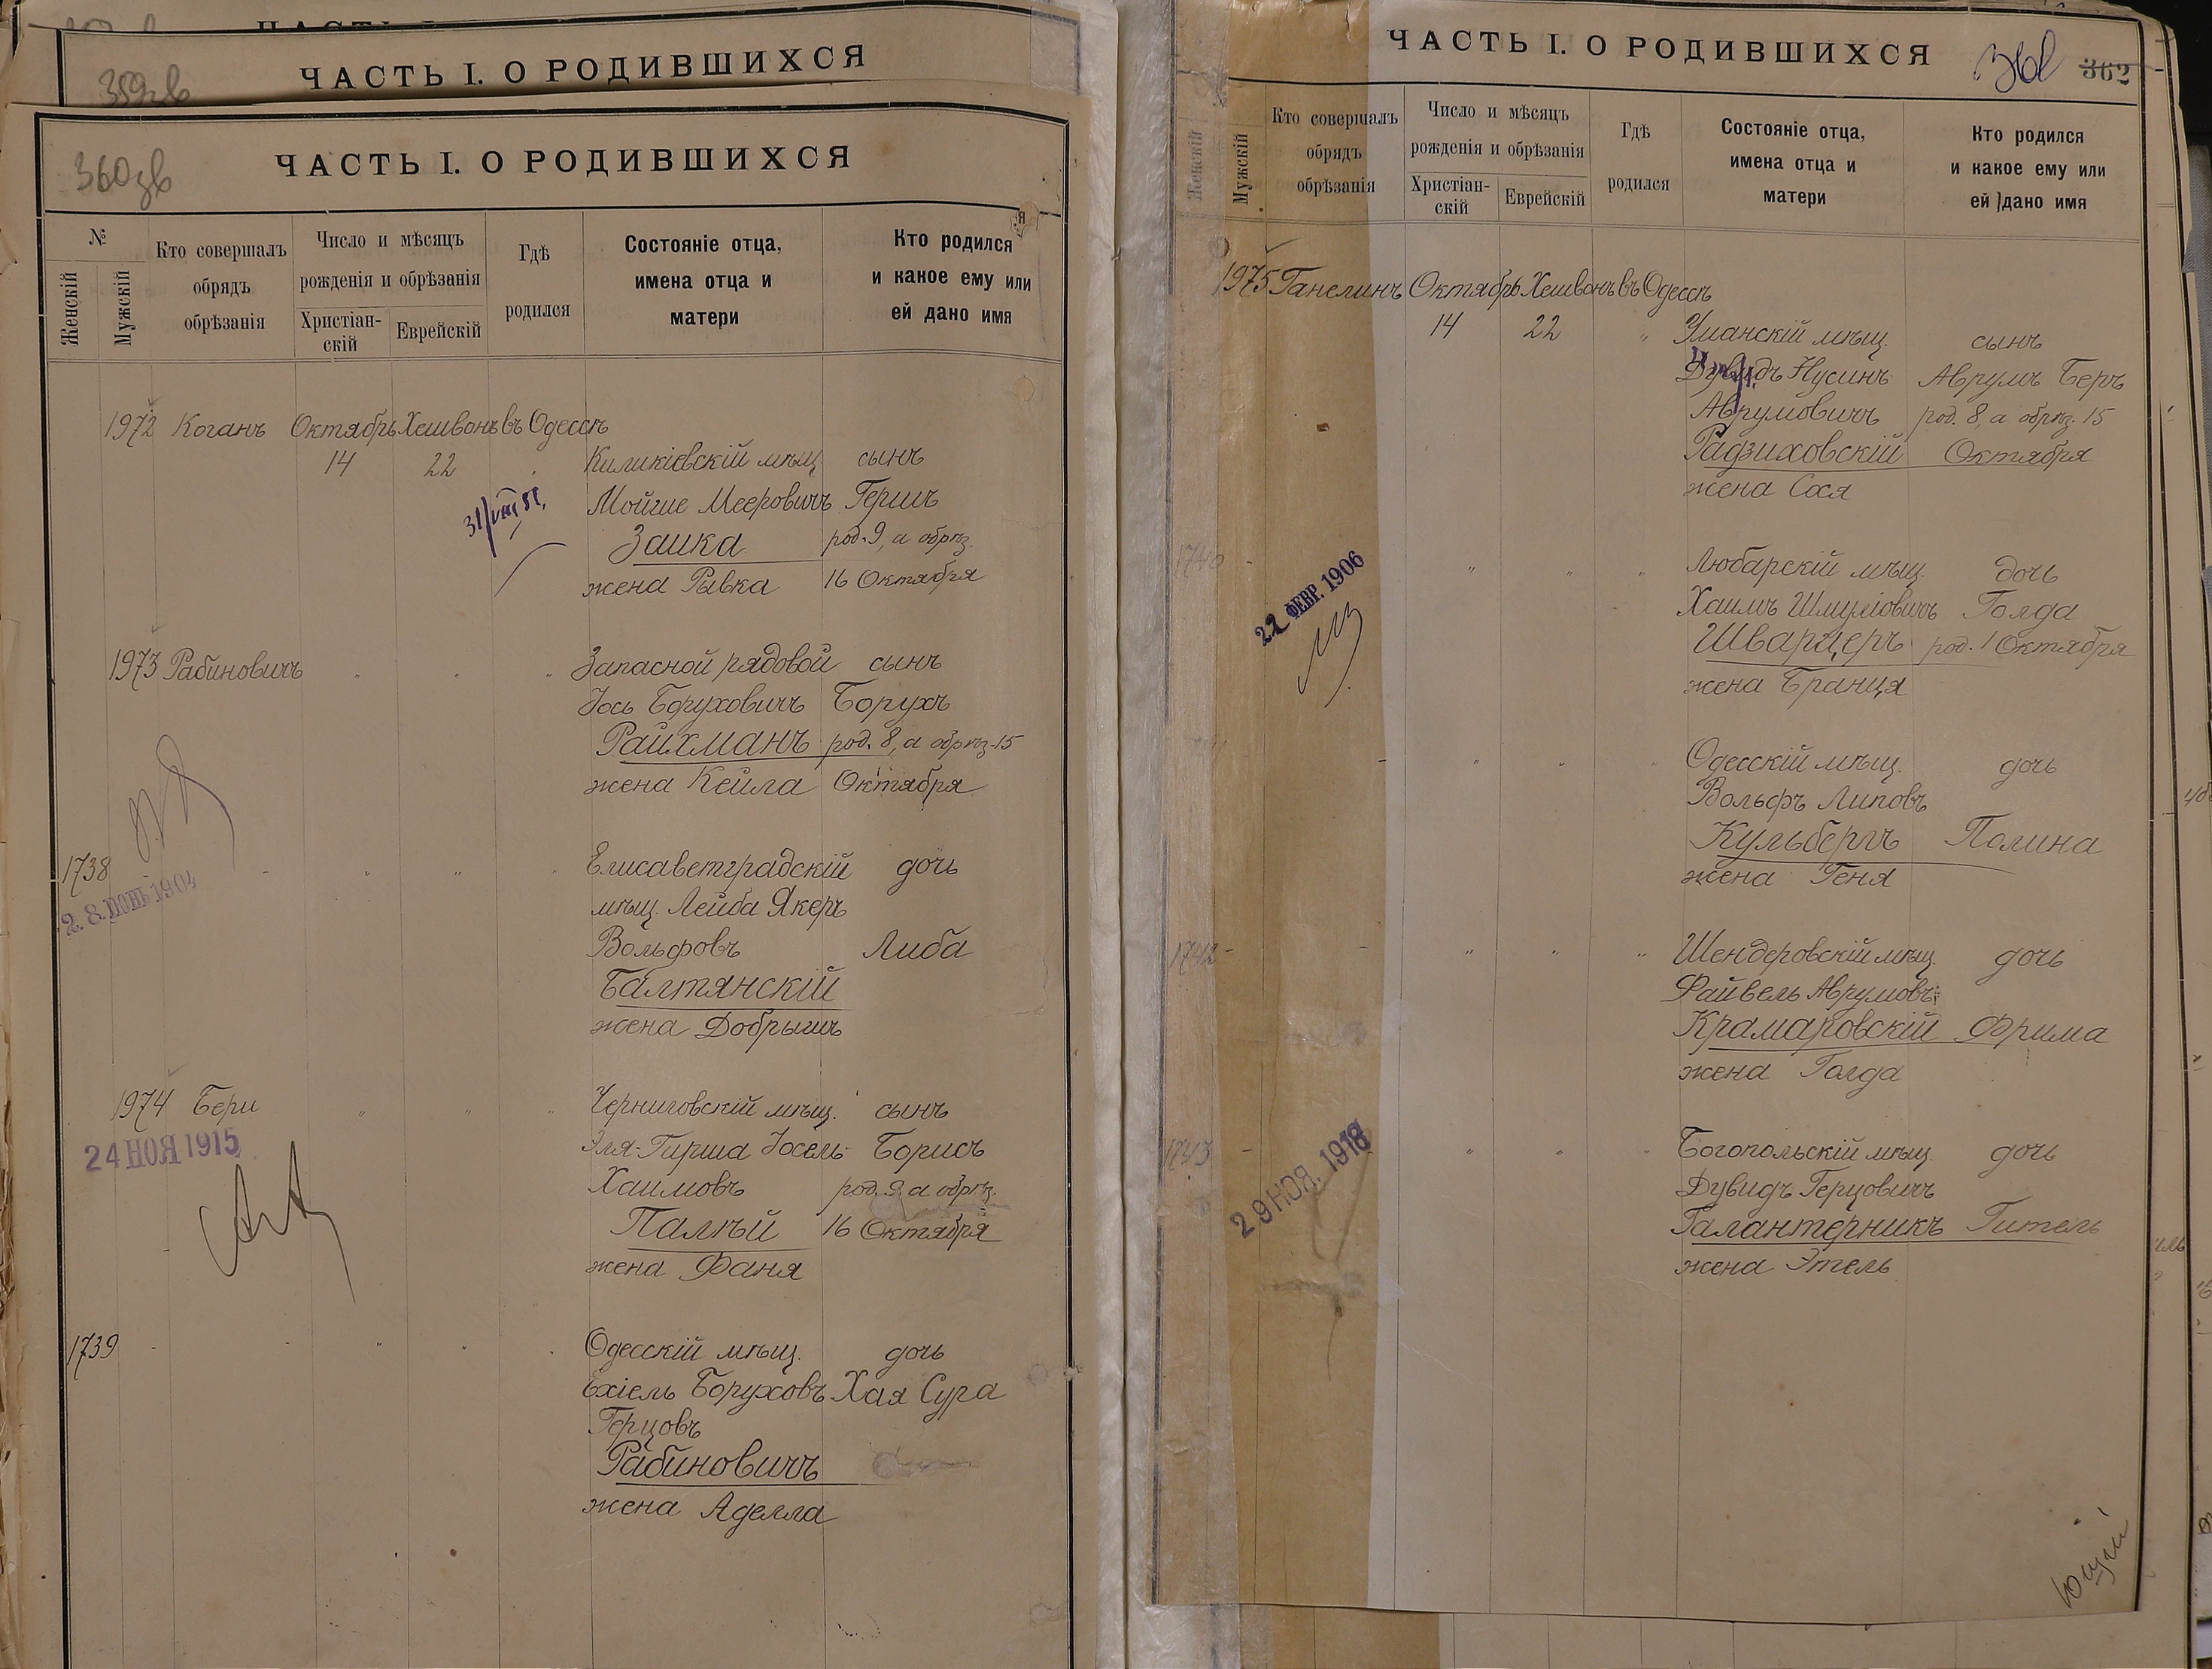 ЧАСТЬ I. О РОДИВШИХСЯ
359зв
ЧАСТЬ I. О РОДИВШИХСЯ
360зв
№
Женскій
Мужскій
Кто совершалъ
обрядъ
обрѣзанія
Число и мѣсяцъ
рожденія и обрѣзанія
Христіан-
скій
Еврейскій
Гдѣ
родился
Состояніе отца,
имена отца и
матери
Кто родился
и какое ему или
ей дано имя
1972 Коганъ Октябрь Хешвонъ въ Одессѣ
14 22 " Киликіевскій мѣщ. сынъ
31/VIII 51. Мойше Мееровичъ Гершъ
Заика род. 9, а обрѣз.
жена Рывка 16 Октября
1973 Рабиновичъ " " " Запасной рядовой сынъ
Іось Боруховичъ Борухъ
Райхманъ род. 8, а обрѣз. 15
жена Кейла Октября
1738 - " " " Елисаветградскій дочь
2.8. ІЮНЬ 1904 мѣщ. Лейба Якеръ
Вольфовъ Либа
Балтянскій
жена Добрышъ
1974 Бери " " " Черниговскій мѣщ. сынъ
24 НОЯ 1915 Эля-Гирша Іосель- Борисъ
Хаимовъ род. 9, а обрѣз.
Палѣй 16 Октября
жена Фаня
1739 - - " " " Одесскій мѣщ. дочь
Ехіель Боруховъ Хая Сура
Герцовъ
Рабиновичъ
жена Аделла
ЧАСТЬ I. О РОДИВШИХСЯ
361 362
Женскій
Мужскій
Кто совершалъ
обрядъ
обрѣзанія
Число и мѣсяцъ
рожденія и обрѣзанія
Христіан-
скій
Еврейскій
Гдѣ
родился
Состояніе отца,
имена отца и
матери
Кто родился
и какое ему или
ей дано имя
1975 Ганелинъ Октябрь Хешвонъ въ Одессѣ
14 22 " Уманскій мѣщ. сынъ
Дувидъ Нусинъ Аврумъ Беръ
Аврумовичъ род. 8, а обрѣз. 15
Радзиховскій Октября
жена Сося
1740 - " " " Любарскій мѣщ. дочь
22 ФЕВР. 1906 Хаимъ Шмуліовичъ Голда
Шварцеръ род. 1 Октября
жена Бранця
- " " " Одесскій мѣщ. дочь
Вольфъ Липовъ
Кульбергъ Полина
жена Геня
1742 - - " " " Шендеровскій мѣщ. дочь
Файвель Аврумовъ
Крамаровскій Фрима
жена Голда
1743 - " " " Богопольскій мѣщ. дочь
29 НОЯ. 1918 Дувидъ Герцовичъ
Галантерникъ Гитель
жена Этель